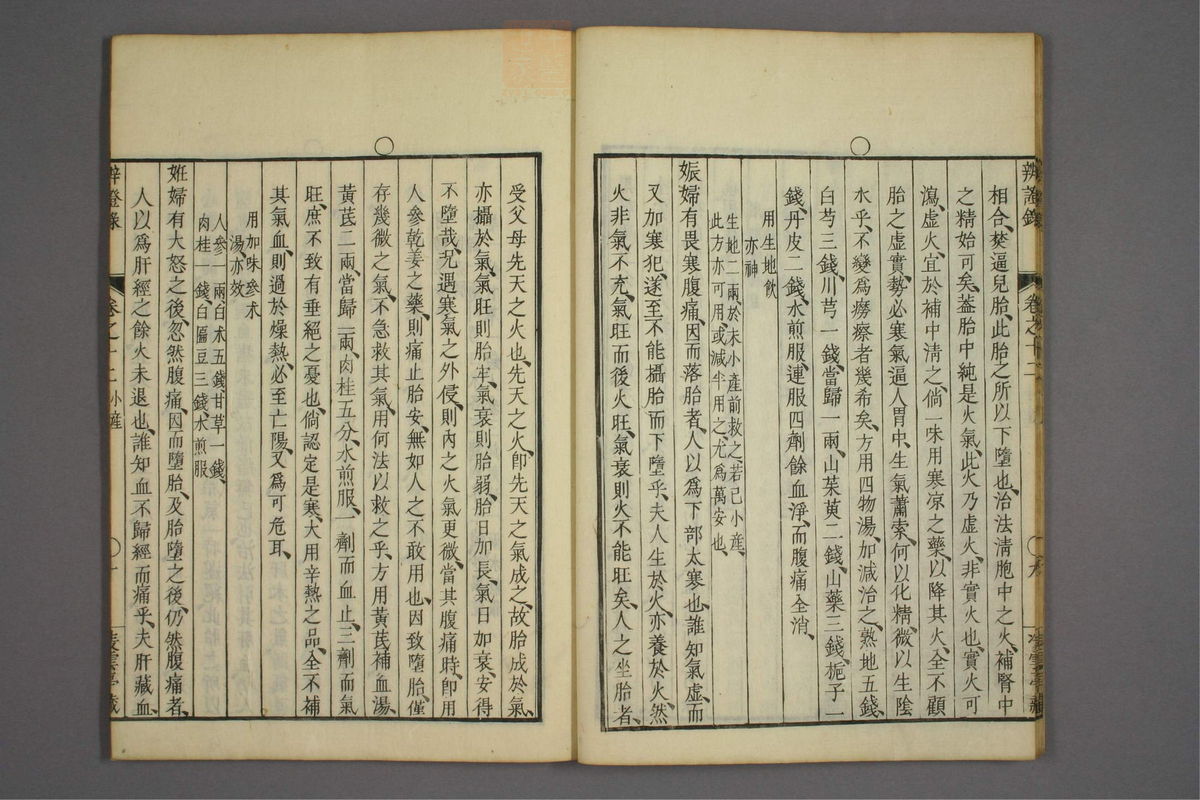 辨證錄 卷之十二 九
相合、焚逼兒胎、此胎之所以下墮也、治法清胞中之火、補腎中
之精始可矣、蓋胎中純是火氣、此火乃虛火、非實火也、實火可
瀉、虛火宜於補中清之、倘一味用寒凉之藥、以降其火、全不顧
胎之虛實、勢必寒氣逼人胃中、生氣蕭索、何以化精微以生陰
水乎、不變爲癆瘵者幾希矣、方用四物湯、加減治之、熟地五錢、
白芍三錢、川芎一錢、當歸一兩、山茱萸二錢、山藥三錢、梔子一
錢、丹皮二錢、水煎服、連服四劑、餘血淨而腹痛全消、
用生地飲
亦神
生地二兩、於未小產前救之、若已小產、
此方亦可用、或減半用之、尤爲萬安也、
娠婦有畏寒腹痛、因而落胎者、人以爲下部太寒也、誰知氣虛而
又加寒犯、遂至不能攝胎而下墮乎、夫人生於火、亦養於火、然
火非氣不充、氣旺而後火旺、氣衰則火不能旺矣、人之坐胎者、
受父母先天之火也、先天之火、卽先天之氣成之、故胎成於氣、
亦攝於氣、氣旺則胎牢、氣衰則胎弱、胎日加長、氣日加衰、安得
不墮哉、况遇寒氣之外侵、則內之火氣更微、當其腹痛時、卽用
人參乾姜之藥、則痛止胎安、無如人之不敢用也、因致墮胎、僅
存幾微之氣、不急救其氣、用何法以救之乎、方用黃芪補血湯、
黃芪二兩、當歸一兩、肉桂五分、水煎服、一劑而血止、三劑而氣
旺、庶不致有垂絕之憂也、倘認定是寒、大用辛熱之品、全不補
其氣血、則過於燥熱、必至亡陽、又爲可危耳、
用加味參术
湯亦效
人參一兩、白术五錢、甘草一錢、
肉桂一錢、白匾豆三錢、水煎服
姙婦有大怒之後、忽然腹痛、因而墮胎、及胎墮之後、仍然腹痛者、
人以爲肝經之餘火未退也、誰知血不歸經而痛乎、夫肝藏血、
辨證錄 卷之十二 小產 十